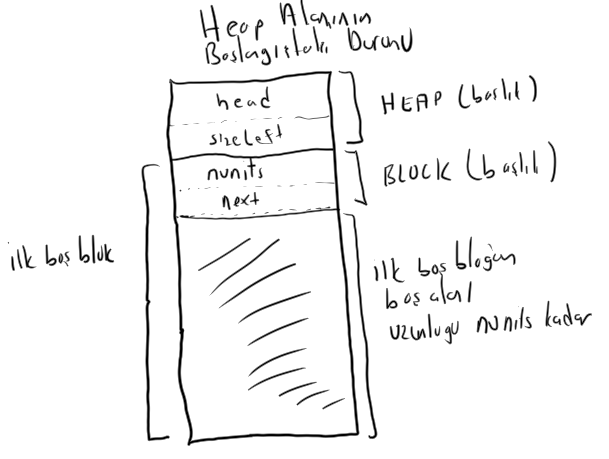 Heap Alanının
Başlangıçtaki Durumu
head
sizeleft
HEAP (başlık)
nunits
next
BLOCK (başlık)
ilk boş blok
ilk boş bloğun
boş alanı
uzunluğu nunits kadar